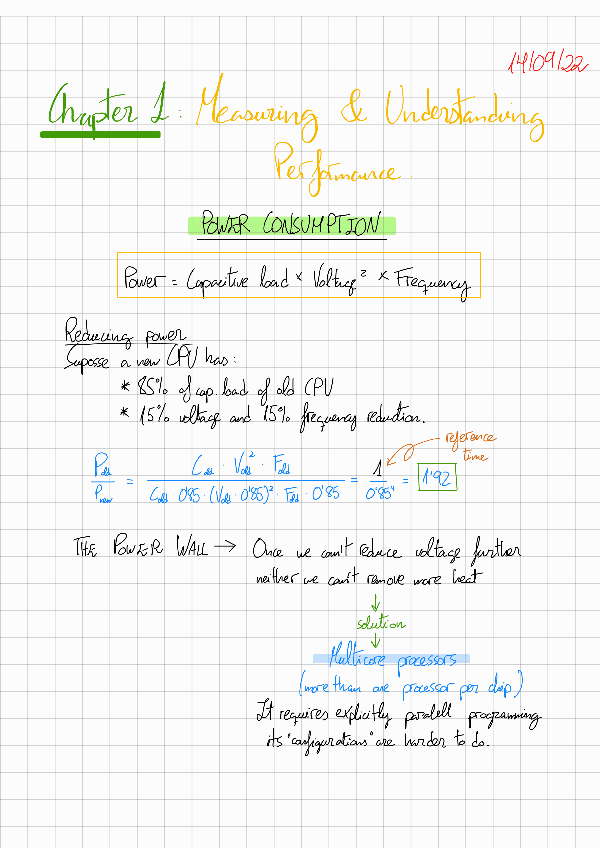 14/09/22
Chapter 1: Measuring & Understanding
Performance.
POWER CONSUMPTION
Power = Capacitive load × Voltage² × Frequency
Reducing power
Supposse a new CPU has:
* 85% of cap. load of old CPU
* 15% voltage and 15% frequency reduction.
reference
time
P_old / P_new = C_old · V_old² · F_old / C_old · 0'85 · (V_old · 0'85)² · F_old · 0'85 = 1 / 0'85⁴ = 1'92
THE POWER WALL → Once we can't reduce voltage further
neither we can't remove more heat
↓
solution
↓
Multicore processors
(more than one processor per chip)
It requires explicitly paralell programming
its "configurations" are harder to do.